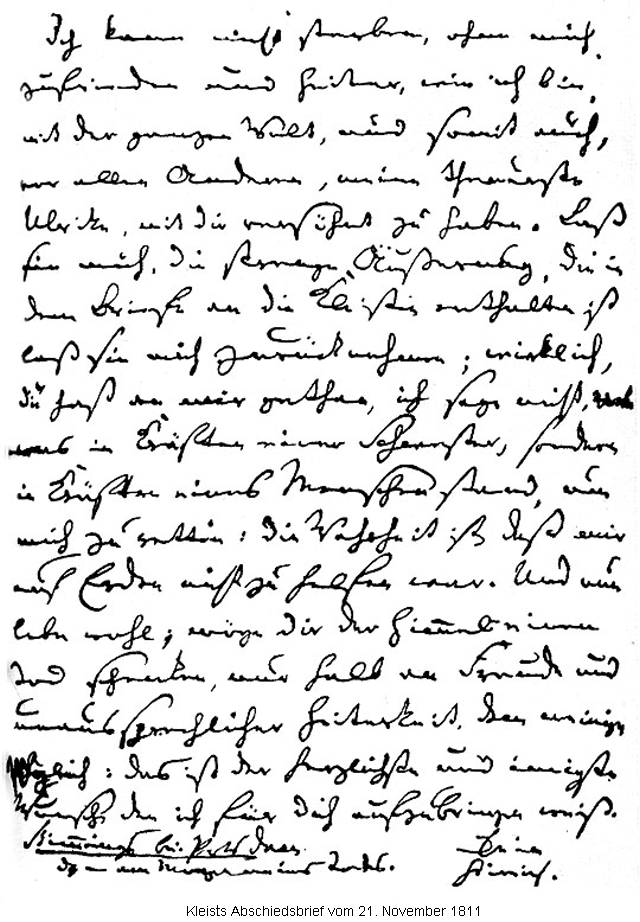 Ich kann nicht sterben, ohne mich,
zufrieden und heiter, wie ich bin,
mit der ganzen Welt, und somit auch,
vor allen Anderen, meine theuerste
Ulrike, mit dir versöhnt zu haben. Laß
sie mich, die strenge Äußerung, die in
dem Briefe an die Kleisten enthalten ist
laß sie mich zurücknehmen; wirklich,
du hast an mir gethan, ich sage nicht,
was in Kräften einer Schwester, sondern
in Kräften eines Menschen stand, um
mich zu retten: die Wahrheit ist, daß mir
auf Erden nicht zu helfen war. Und nun
lebe wohl; möge dir der Himmel einen
Tod schenken, nur halb an Freude und
unaussprechlicher Heiterkeit, dem meinigen
gleich: das ist der herzlichste und innigste
Wunsch, den ich für dich aufzubringen weiß.
Stimmings bei Potsdam Dein
d. – am Morgen meines Todes. Heinrich.
Kleists Abschiedsbrief vom 21. November 1811